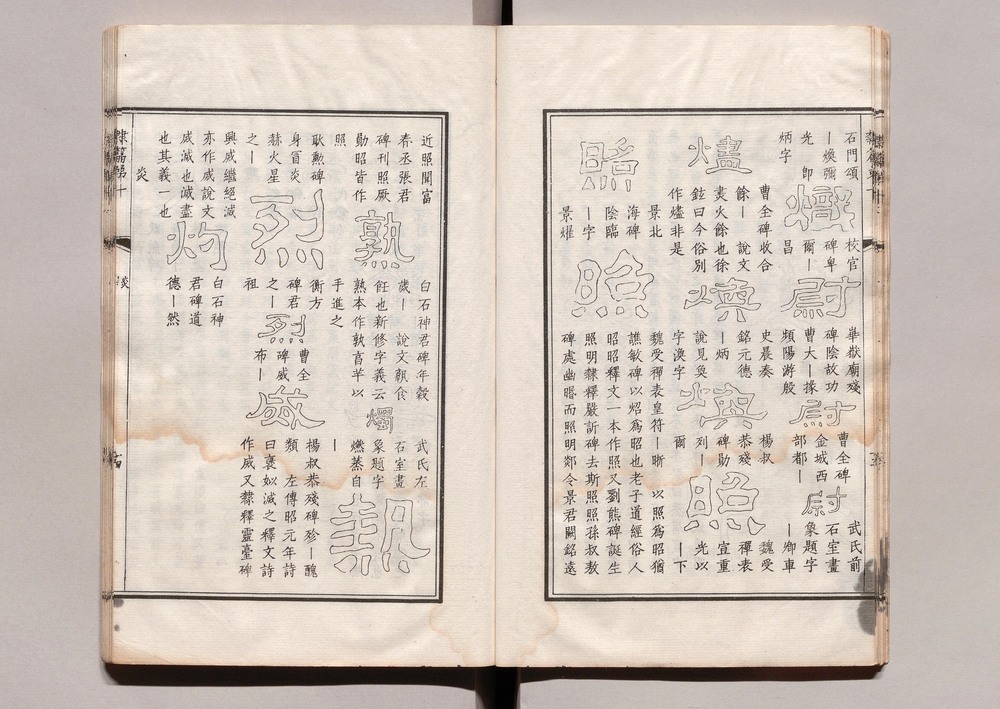 石門頌
｜煥彌
光　即
炳字
熾
校官
碑卑
爾｜
昌
尉
華嶽廟殘
碑陰故功
曹大｜掾
頻陽游殷
尉
曹全碑
金城西
部都｜
尉
武氏前
石室畫
象題字
｜卿車
燼
曹全碑收合
餘｜　說文
㶳火餘也徐
鉉曰今俗別
作燼非是
煥
史晨奏
銘元德
｜炳
說見奐
字渙字
煥
楊叔
恭殘
碑勛
列｜
爾
照
魏受
禪表
宣重
光以
｜下
照
景北
海碑
陰臨
｜字
景燿
照
魏受禪表皇符｜晣　以照爲昭猶
譙敏碑以炤爲昭也老子道經俗人
昭昭釋文一本作照又劉熊碑誕生
照明隸釋嚴訢碑去斯照照孫叔敖
碑處幽而照明郯令景君闕銘遠
近照聞富
春丞張君
碑刊照厥
勛昭皆作
照
熟
白石神君碑年穀
歲｜　說文食
飪也新修字義云
熟本作亯以
手進之
燭
武氏左
石室畫
象題字
燃蒸自
｜
耿勳碑
身冒炎
赫火星
之｜
烈
衡方
碑君
之｜
祖
烈
曹全
碑威
布｜
烕
楊叔恭殘碑殄｜醜
類　左傳昭元年詩
曰襃姒滅之釋文詩
作烕又隸釋靈臺碑
興烕繼絕滅
亦作烕說文
烕滅也滅盡
也其義一也
灼
白石神
君碑道
德｜然
炎
隸篇第十